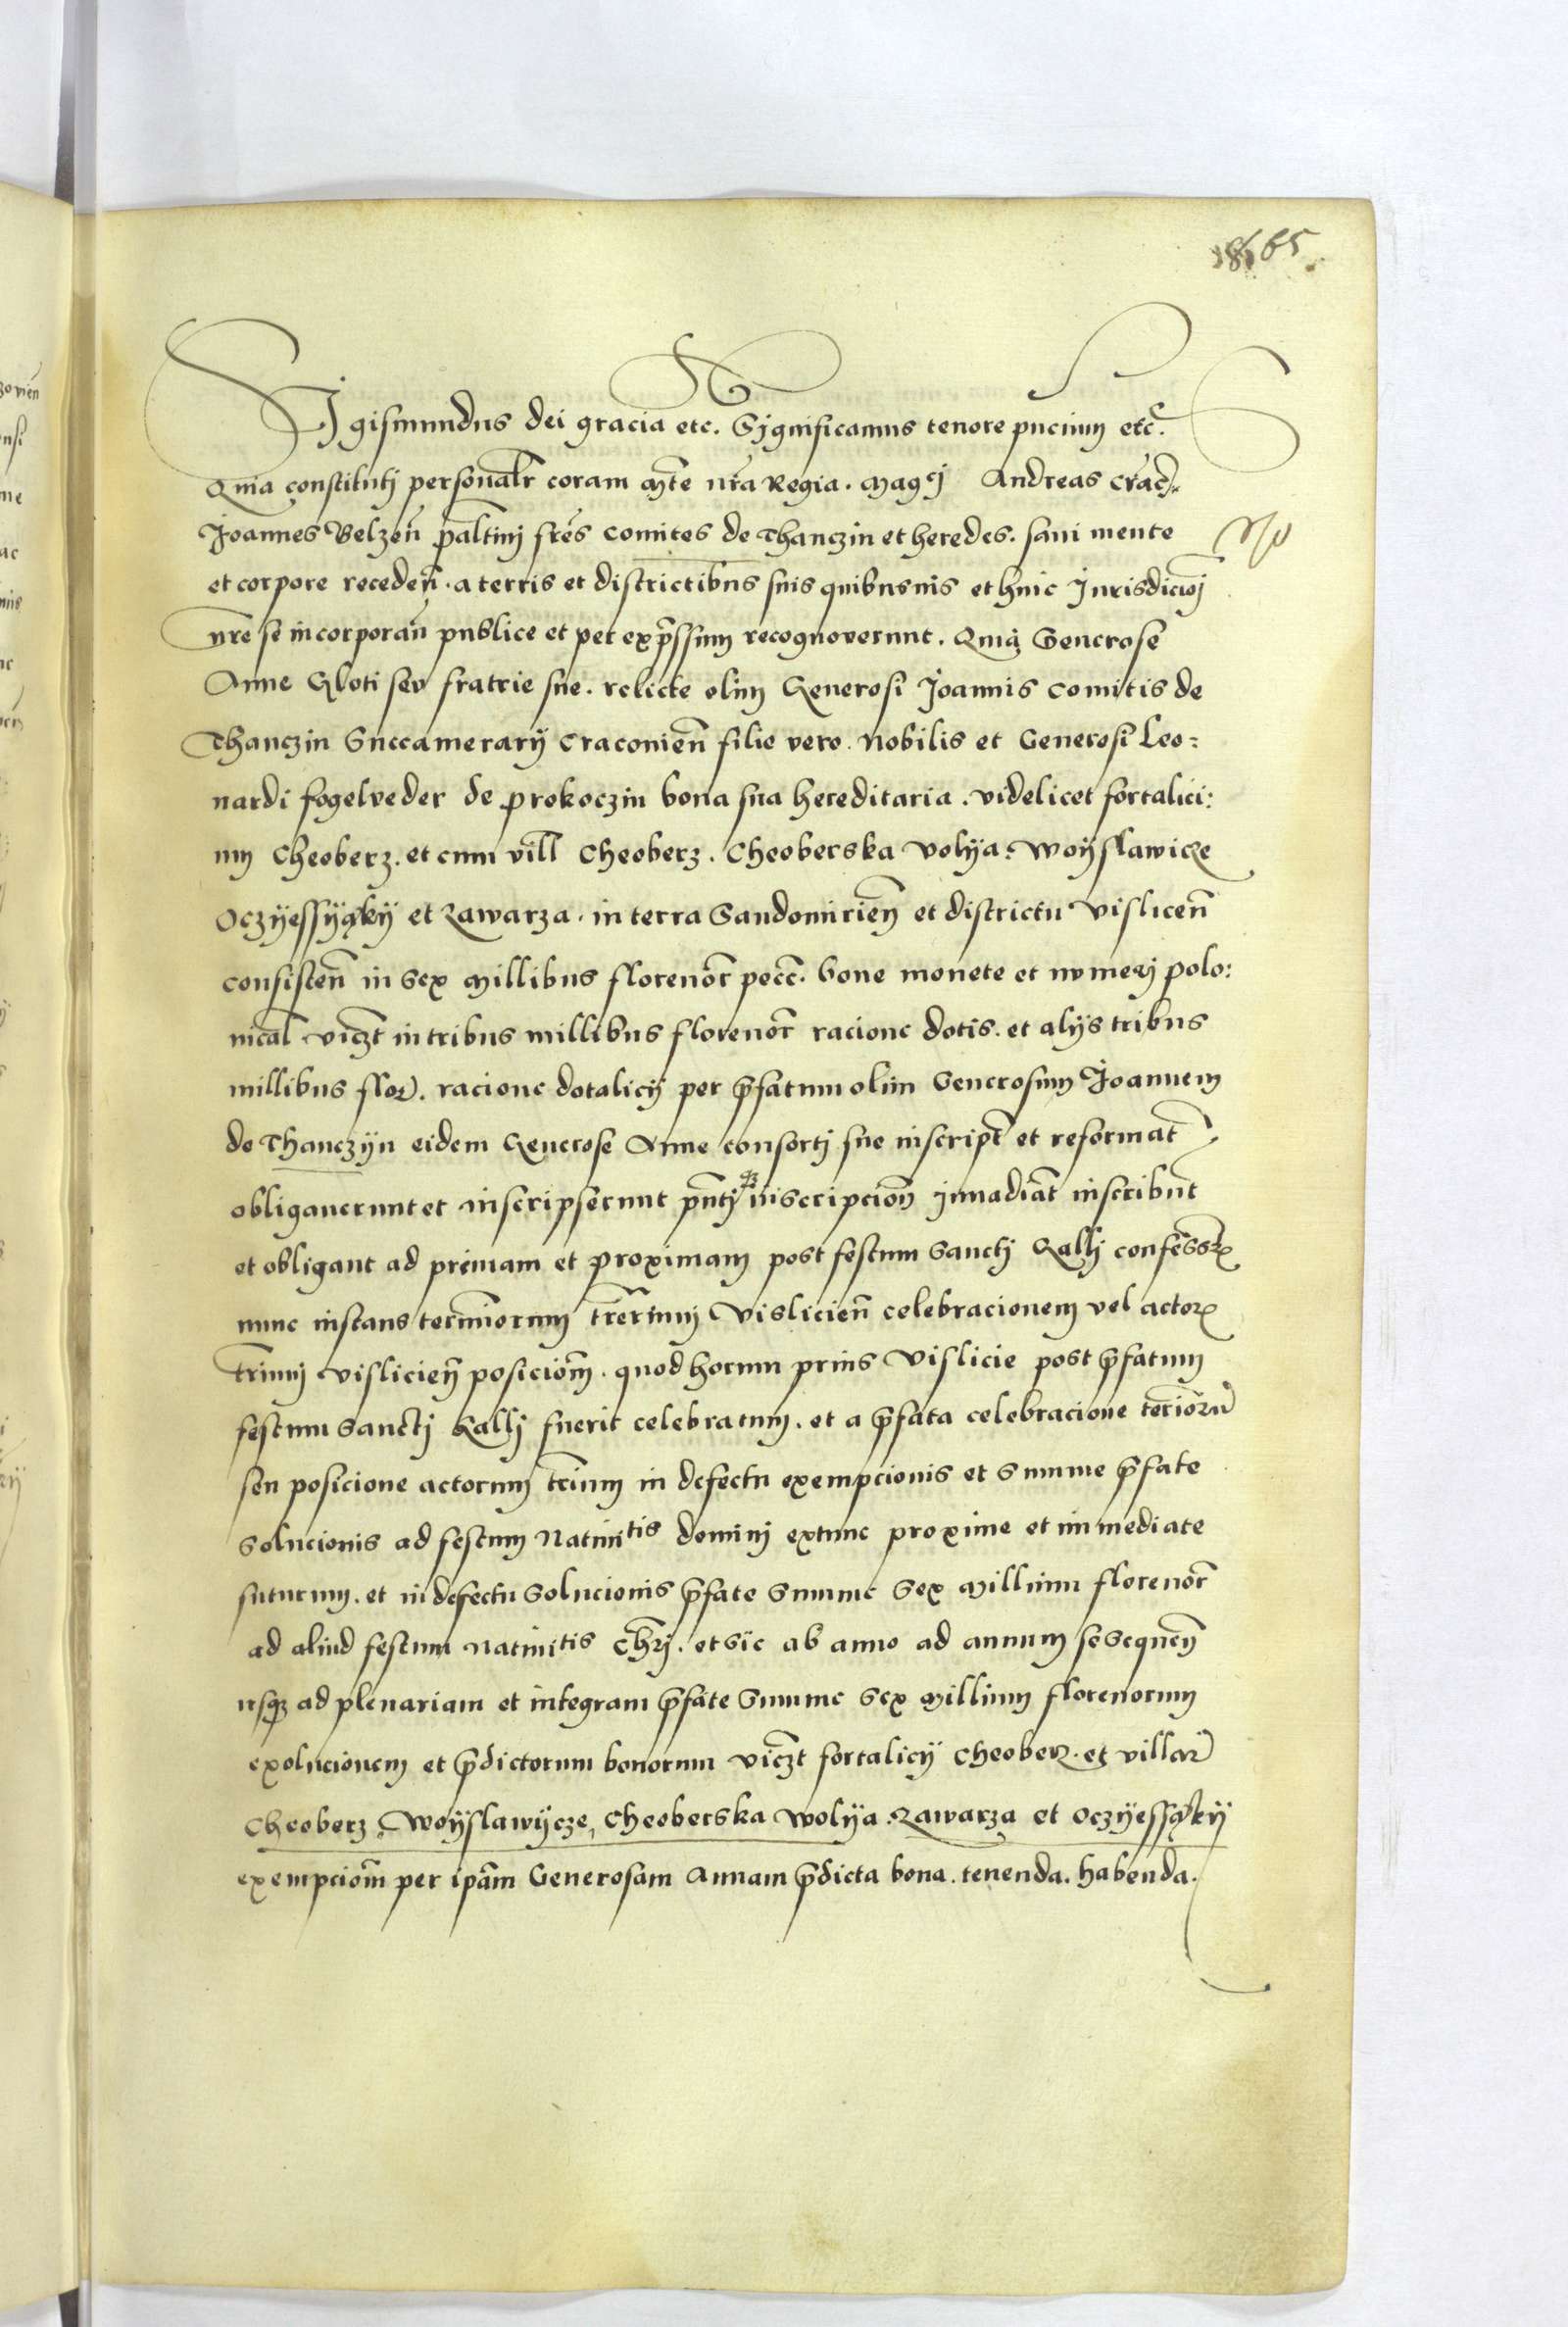 65
Sigismundus dei gracia etc. Significamus tenore pñcium etc̃.
Quia constitutj personalr̃ coram Mte nr̃a Regia. Magcj Andreas Crac̃.
Joannes Belzeñ palatinj fres̃ comites de Thanczin et heredes. sani mente
et corpore recedeñ. a terris et districtibus suis quibusuis et huic Jurisdicioj̃
nr̃e se incorporañ publice et per exp̃ssum recognoverunt. Quia̧ Generose
Anne Gloti seu fratrie sue. relicte olim Generosi Joannis comitis de
Thanczin Succamerarÿ Cracovieñ filie vero. Nobilis et Generosi Leo=
nardi fogelveder de prokoczin bona sua hereditaria. videlicet fortalici:
um Cheoberz. et cum vill̃ Cheoberz. Cheoberska Volÿa. Woÿslawicze
Oczÿessÿąkÿ et Zawarza. in terra Sandomirieñ et districtu Visliceñ
consisteñ in sex Millibus florenor̃ pecc̃. bone monete et numerj polo:
nical̃ viczt̃ in tribus millibus florenor̃ racione dotis. et alÿs tribus
millibus flor̃. racione dotalicÿ per p̃fatum olim Generosum Joannem
de Thanczÿn eidem Generose Anne consortj sue inscript̃ et reformat̃
obligaverunt et inscripserunt pñtjqz inscripcioñ jnuadiãt inscribũt
et obligant ad primam et proximam post festum Sanctj Gallj confessor̃
nunc instans terminorum tr̃erũm Vislicieñ celebracionem vel actor̃
tr̃rium Vislicieñ posiciom̃. quod horum prius Vislicie post p̃fatum
festum Sanctj Gallj fuerit celebratum. et a p̃fata celebracione termior̃u
seu posicione actorum tr̃rium in defectu exempcionis et summe p̃fate
solucionis ad festum Natiuitis dominj extunc proxime et immediate
futurum. et in defectu solucionis p̃fate summe sex Millium florenor̃
ad aliud festum natiuitis Chr̃j. et sic ab anno ad annum se sequeñ
usqz ad plenariam et integram p̃fate summe sex Millium florenorum
exolucionem et p̃dictorum bonorum viczt̃ fortalicÿ Cheoberz. et villar̃
Cheoberz, Woÿslawÿcze, Cheoberska Wolÿa. Zawarza et Oczÿessąkÿ
exempciom̃ per ipãm Generosam Annam p̃dicta bona. tenenda. habenda.